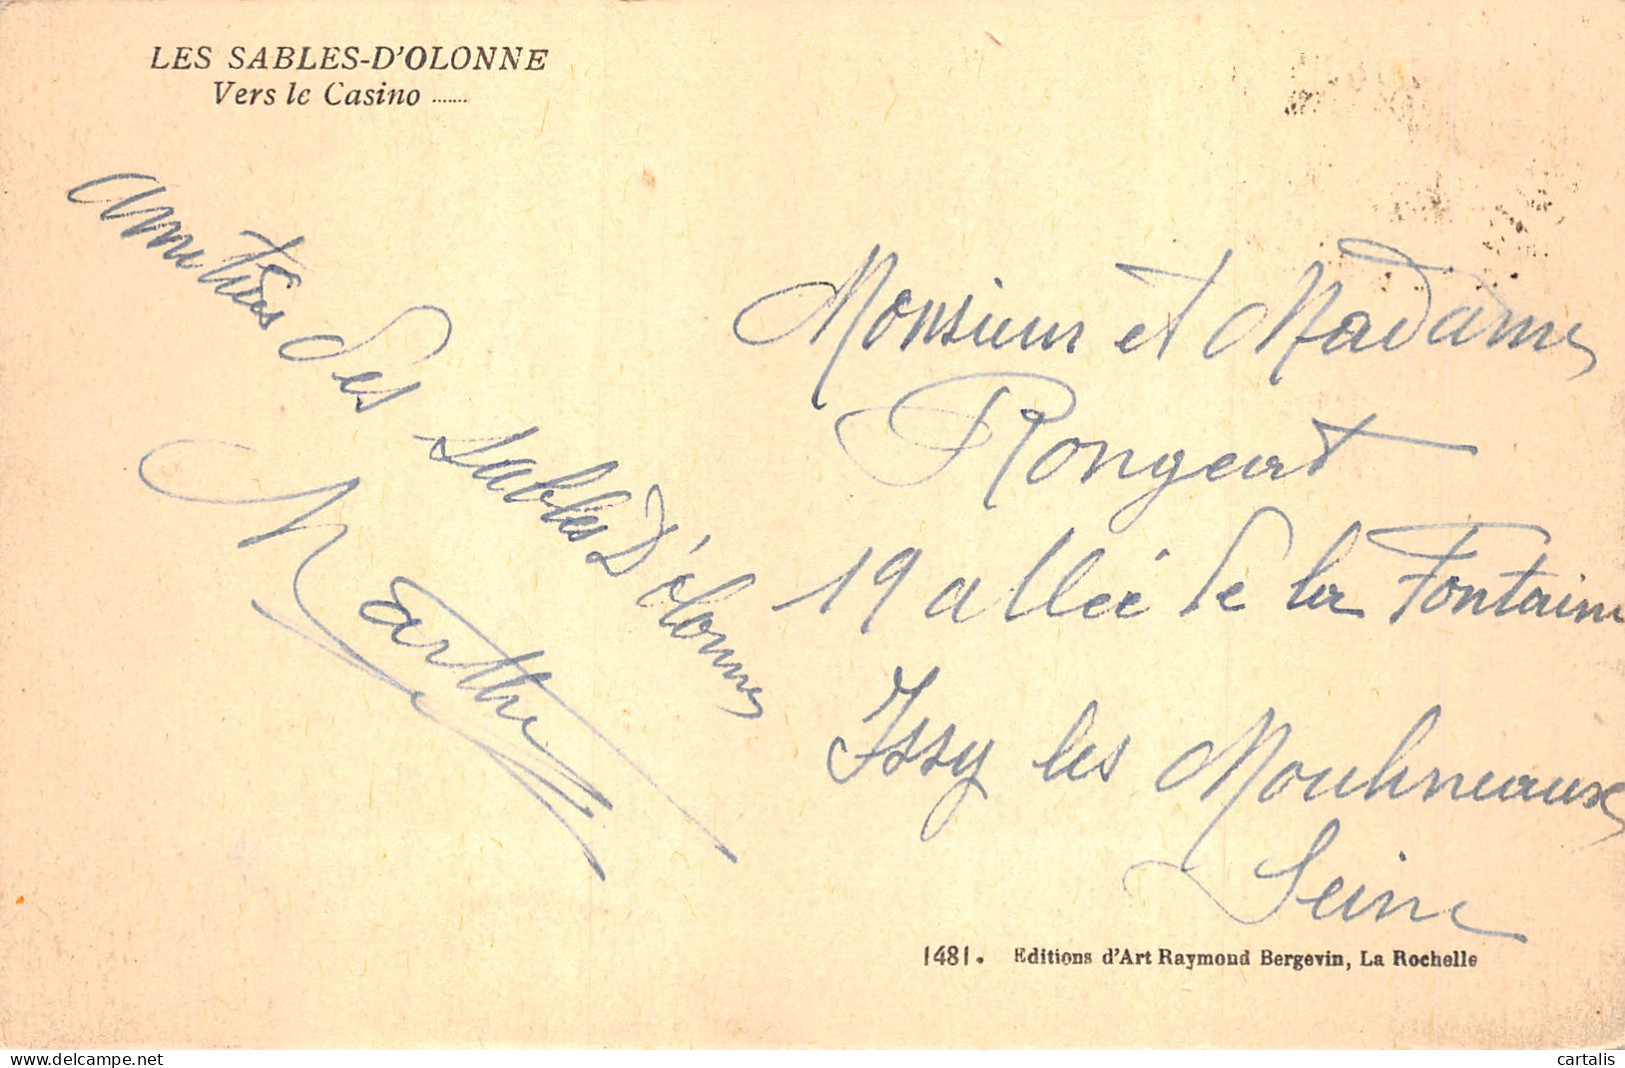 LES SABLES-D'OLONNE
Vers le Casino .......
amitiés des Sables d'olonne
Marthe
Monsieur et Madame
Rongeat
19 allée de la Fontaine
Issy les Moulineaux
Seine
1481. Editions d'Art Raymond Bergevin, La Rochelle
delcampe.net
cartalis